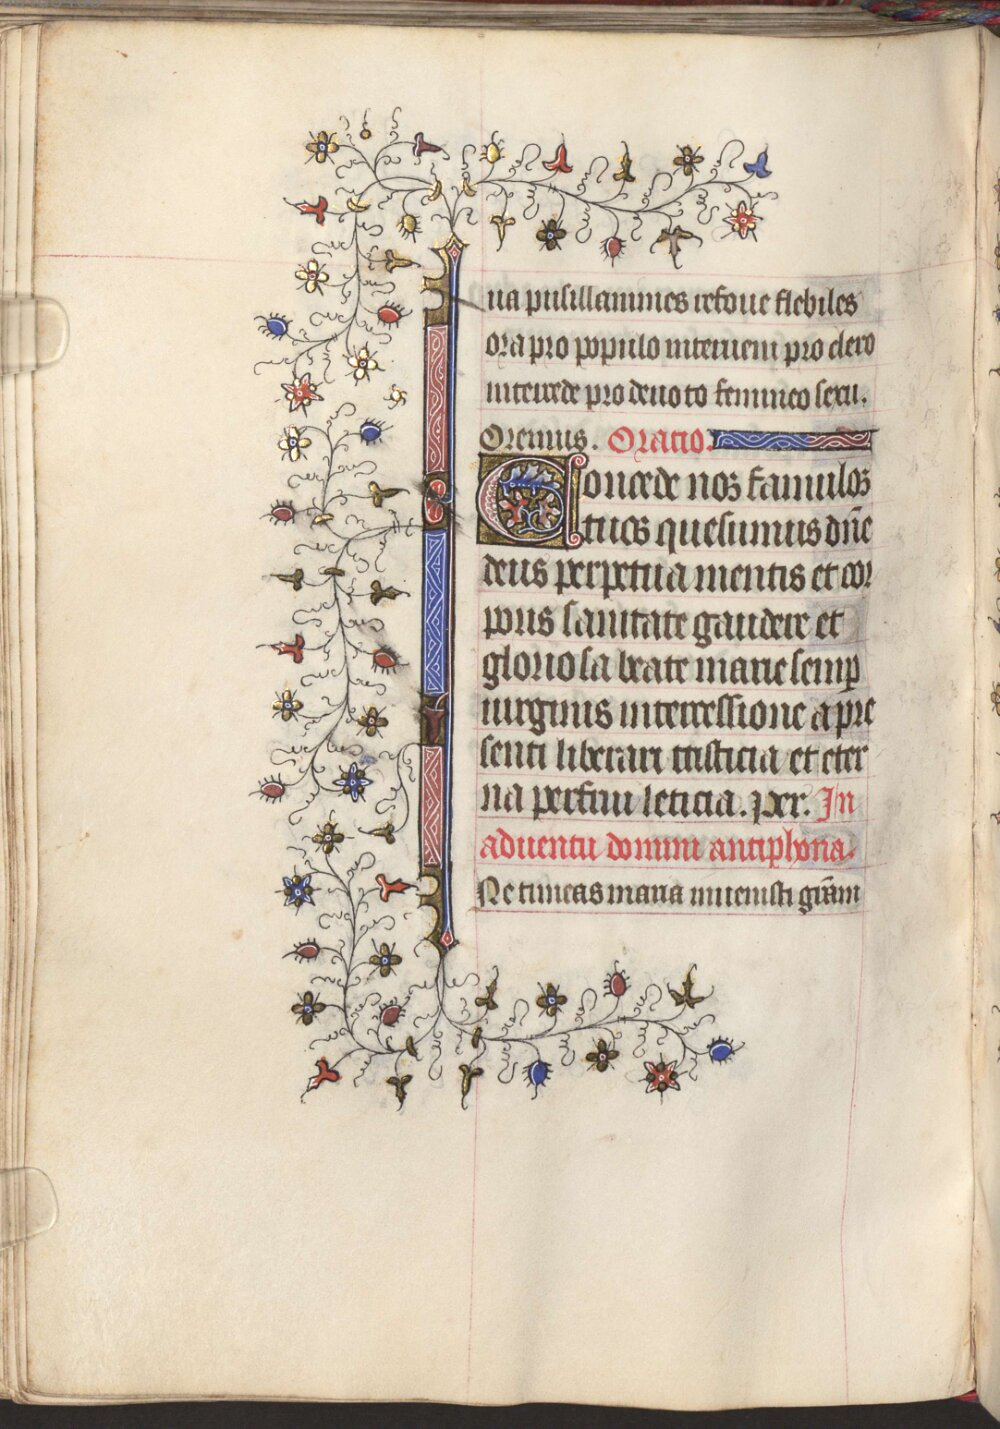 ua pusillanimes refoue flebiles
ora pro populo interueni pro clero
intercede pro deuoto femineo sexu.
Oremus. Oratio.
Concede nos famulos
tuos quesumus dn̄e
deus perpetua mentis et cor
poris sanitate gaudere et
gloriosa beate marie semp̄
uirginis intercessione a pre
senti liberari tristicia et eter
na perfrui leticia. per. In
aduentu domini antiphona.
Ne timeas maria inuenisti gr̄am